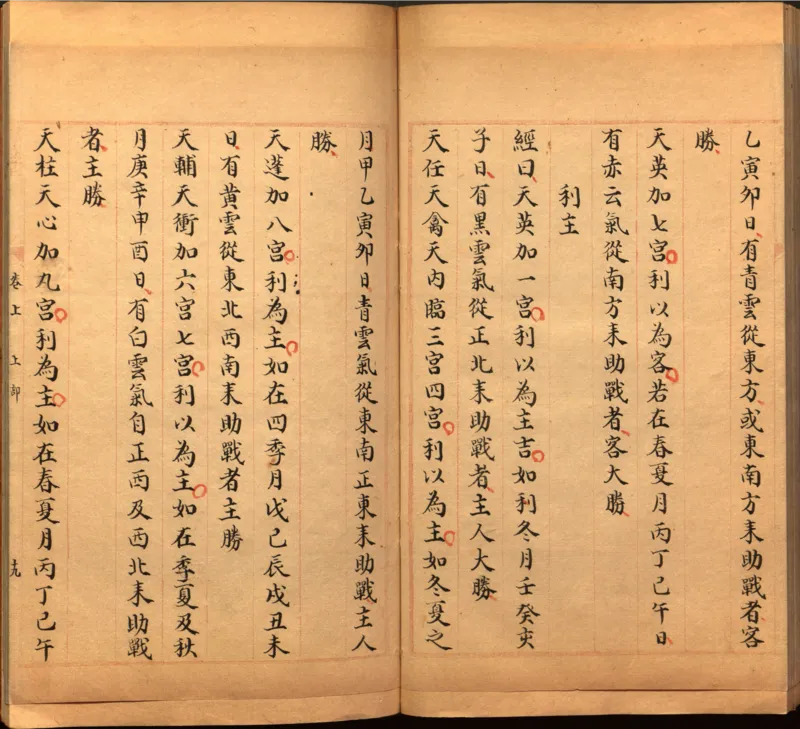 乙寅卯日有青雲從東方或東南方来助戰者客
勝
天英加七宮利以為客若在春夏月丙丁己午日
有赤云氣從南方来助戰者客大勝
利主
經曰天英加一宮利以為主吉如利冬月壬癸亥
子日有黑雲氣從正北来助戰者主人大勝
天任天禽天內臨三宮四宮利以為主如冬夏之
月甲乙寅卯日青雲氣從東南正東来助戰主人
勝
天蓬加八宮利為主如在四季月戊己辰戌丑未
日有黃雲從東北西南来助戰者主勝
天輔天衝加六宮七宮利以為主如在季夏及秋
月庚辛申酉日有白雲氣自正西及西北来助戰
者主勝
天柱天心加九宮利為主如在春夏月丙丁己午
卷上 上部 十九